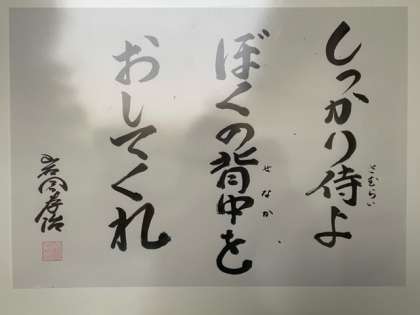 しっかり侍よ
さむらい
ぼくの背中を
せなか
おしてくれ